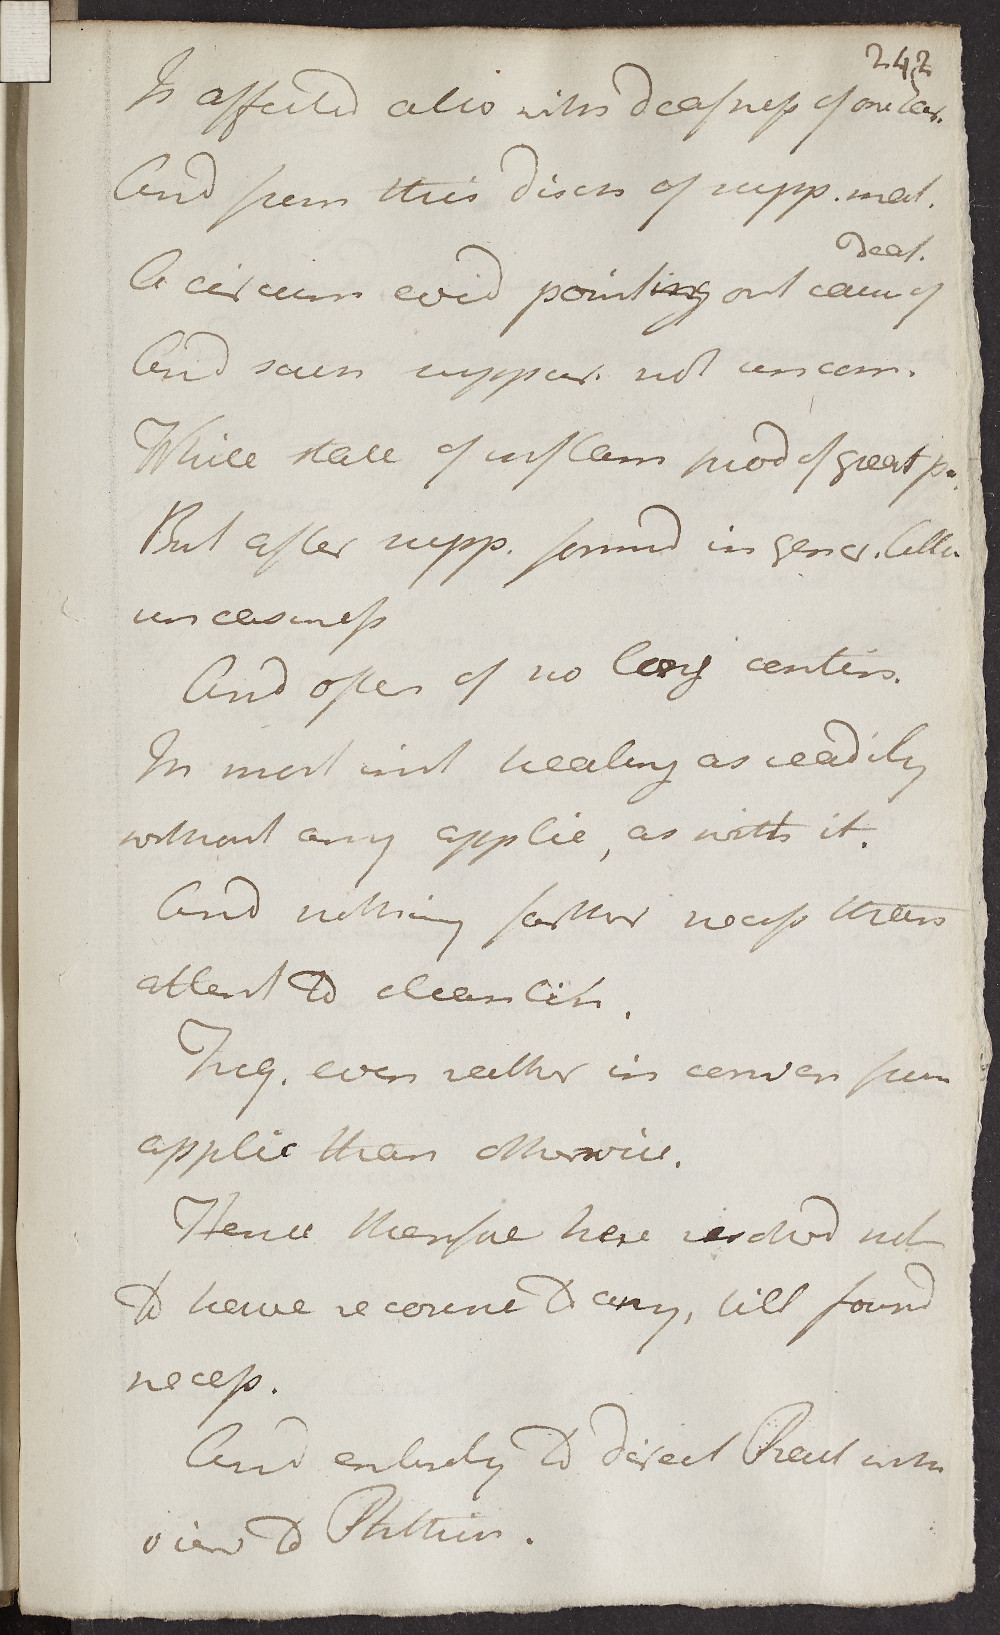 242
Is affected also with deafness of one ear.
And from this disch of supp. mat.
deaf.
A circum evid pointing out cause of
And such suppur. not uncom.
While state of inflam prod of great p.
But after supp. formd in gener. little
uneasiness
And often of no long contin.
In most inst healing as readily
without any applic, as with it.
And nothing farther necess than
attent to cleanlin.
Freq. even rather in conven from
applic than otherwise.
Hence therefore here resolvd not
to have recourse to any, till found
necess.
And entirely to direct Pract with
view to Phthisis.